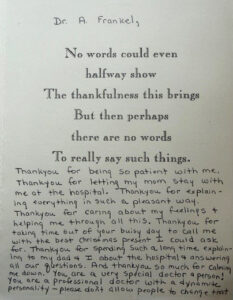 Dr. A. Frankel,
No words could even
halfway show
The thankfulness this brings
But then perhaps
there are no words
To really say such things.
Thankyou for being so patient with me.
Thankyou for letting my mom stay with
me at the hospital. Thankyou for explain-
ing everything in such a pleasant way.
Thankyou for caring about my feelings &
helping me through all this. Thankyou for
taking time out of your busy day to call me
with the best christmas present I could ask
for. Thankyou for spending such a long time explain-
ing to my dad & I about the hospital & answering
all our questions. And thankyou so much for calming
me down. You are a very special doctor & person!
You are a professional doctor with a dynamite
personality - please don't allow people to change that